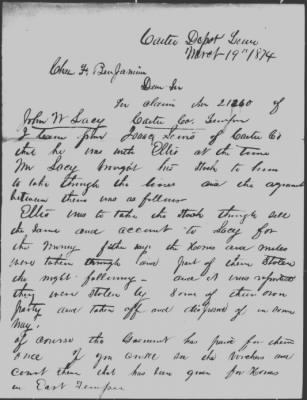 Carter Depot Tenn
March 19th 1874
Chas F. Benjamin
Dear Sir
In claim No 21260 of
John W Lacy Carter Co. Tenn
I learn from Isaac Lewis of Carter Co
that he was with Ellis at the time
Mr Lacy brought his stock to him
to take through the lines and the agreement
between them was as follows
Ellis was to take the stock through sell
the same and account to Lacy for
the money further says the Horses and mules
were taken through and part of them stolen
the night following and it was reported
they were stolen by some of their own
party and taken off and disposed of in some
way.
of course the Government has paid for them
once If you could see the vouchers and
count them that has been given for Horses
in East Tenn